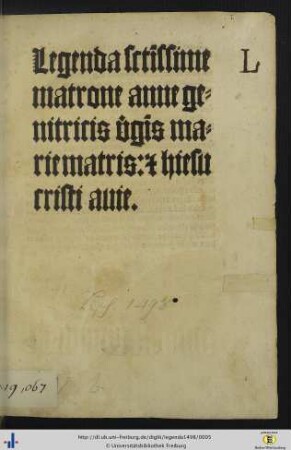 Legenda sctissime
L
matrone anne ge-
nitricis v̄gīs ma-
rie matris: & hiesu
cristi auie.
1498
19,067
http://dl.ub.uni-freiburg.de/diglit/legenda1498/0005
© Universitätsbibliothek Freiburg